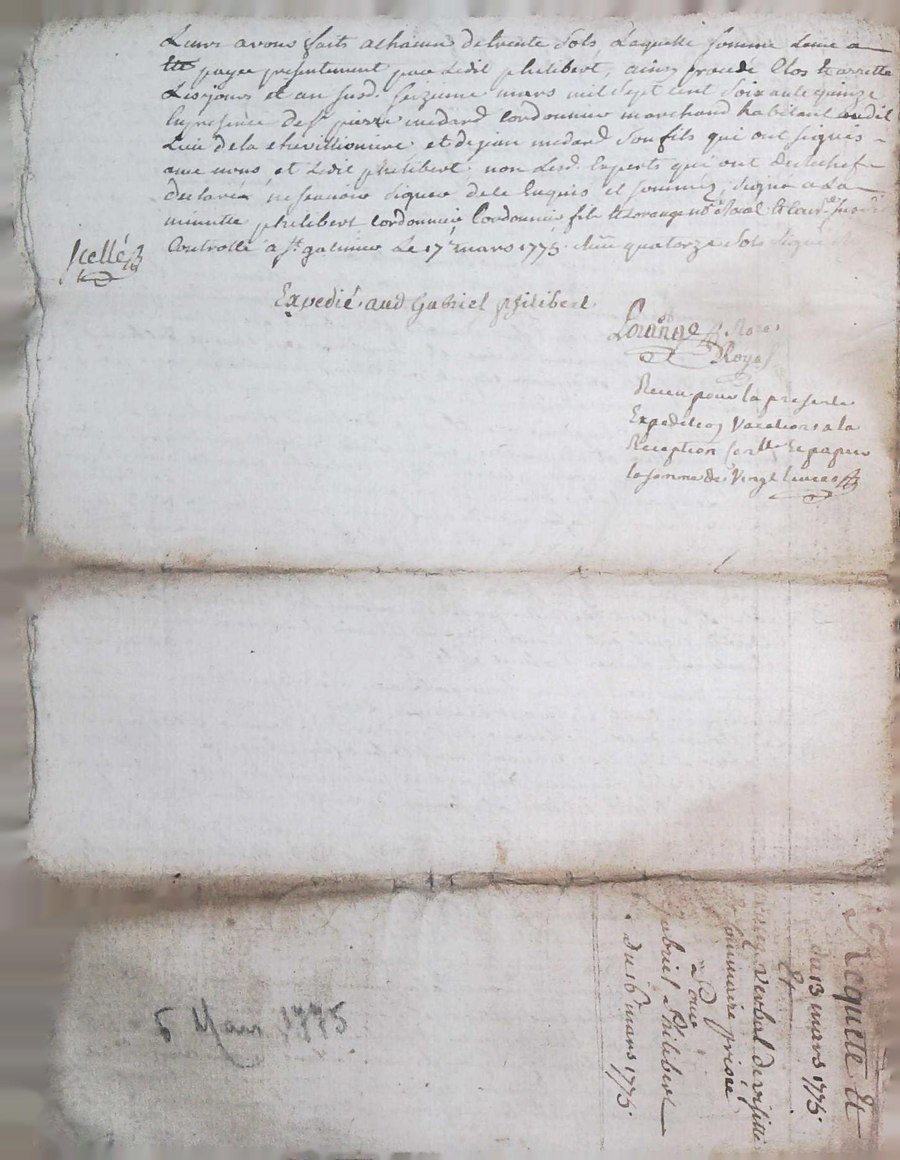 Leurs avons faits a chacun de trente sols Laquelle somme Leur a
payée presentement par Ledit philibert, ainsy procedé Clos et arretté
Les jours et an susd. seizieme mars mil sept cent soixante quinze
En presence de Sr. pierre medard Cordonnier marchand habitant audit
Lieu de la et de jean medard son fils qui ont signés
avec nous, et Ledit philibert non Lesd. Experts qui ont derechef
declarés ne sçavoir signer de ce Enquis et sommés, signé a La
minutte philibert Cordonnier Cordonnier fils et Lorange no.re Roial
Controllé a St. galmier Le 17e. mars 1775. quatorze sols signé
Scellé
Expedié aud Gabriel philibert
Lorange
Royal
Receu pour la presente
Expedition Vacations a la
Reception et papier
la somme de Vingt livres
Requete Et
du 13 mars 1775
Et
verbal de visitte
sommaire prisée
Pour
Gabriel Philibert
du 16 mars 1775.
6 Mars 1775